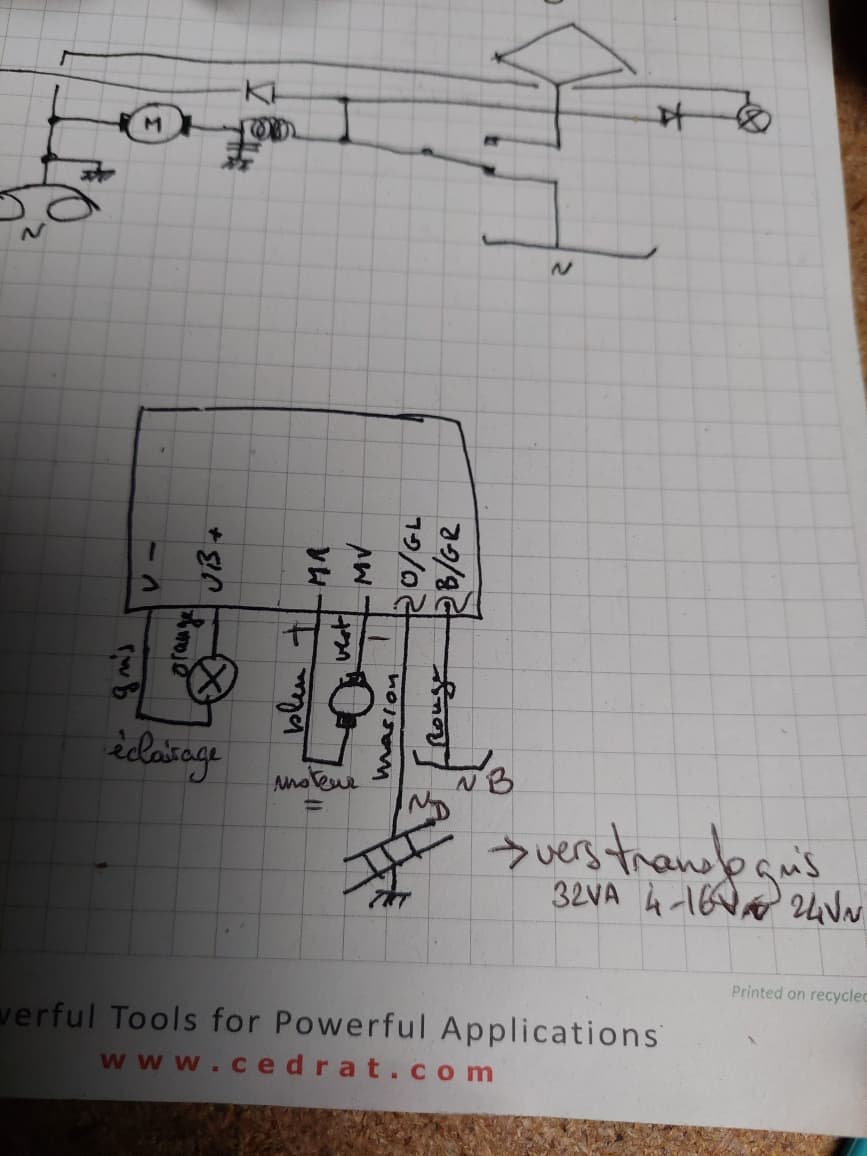 M
N
N
V-
VB+
MR
MV
O/GL
B/GR
gris
orange
bleu +
vert -
marron
Rouge
éclairage
moteur
=
~ D
~ B
→ vers transfo gris
32VA 4-16V~ 24V~
Printed on recycled
verful Tools for Powerful Applications
www.cedrat.com